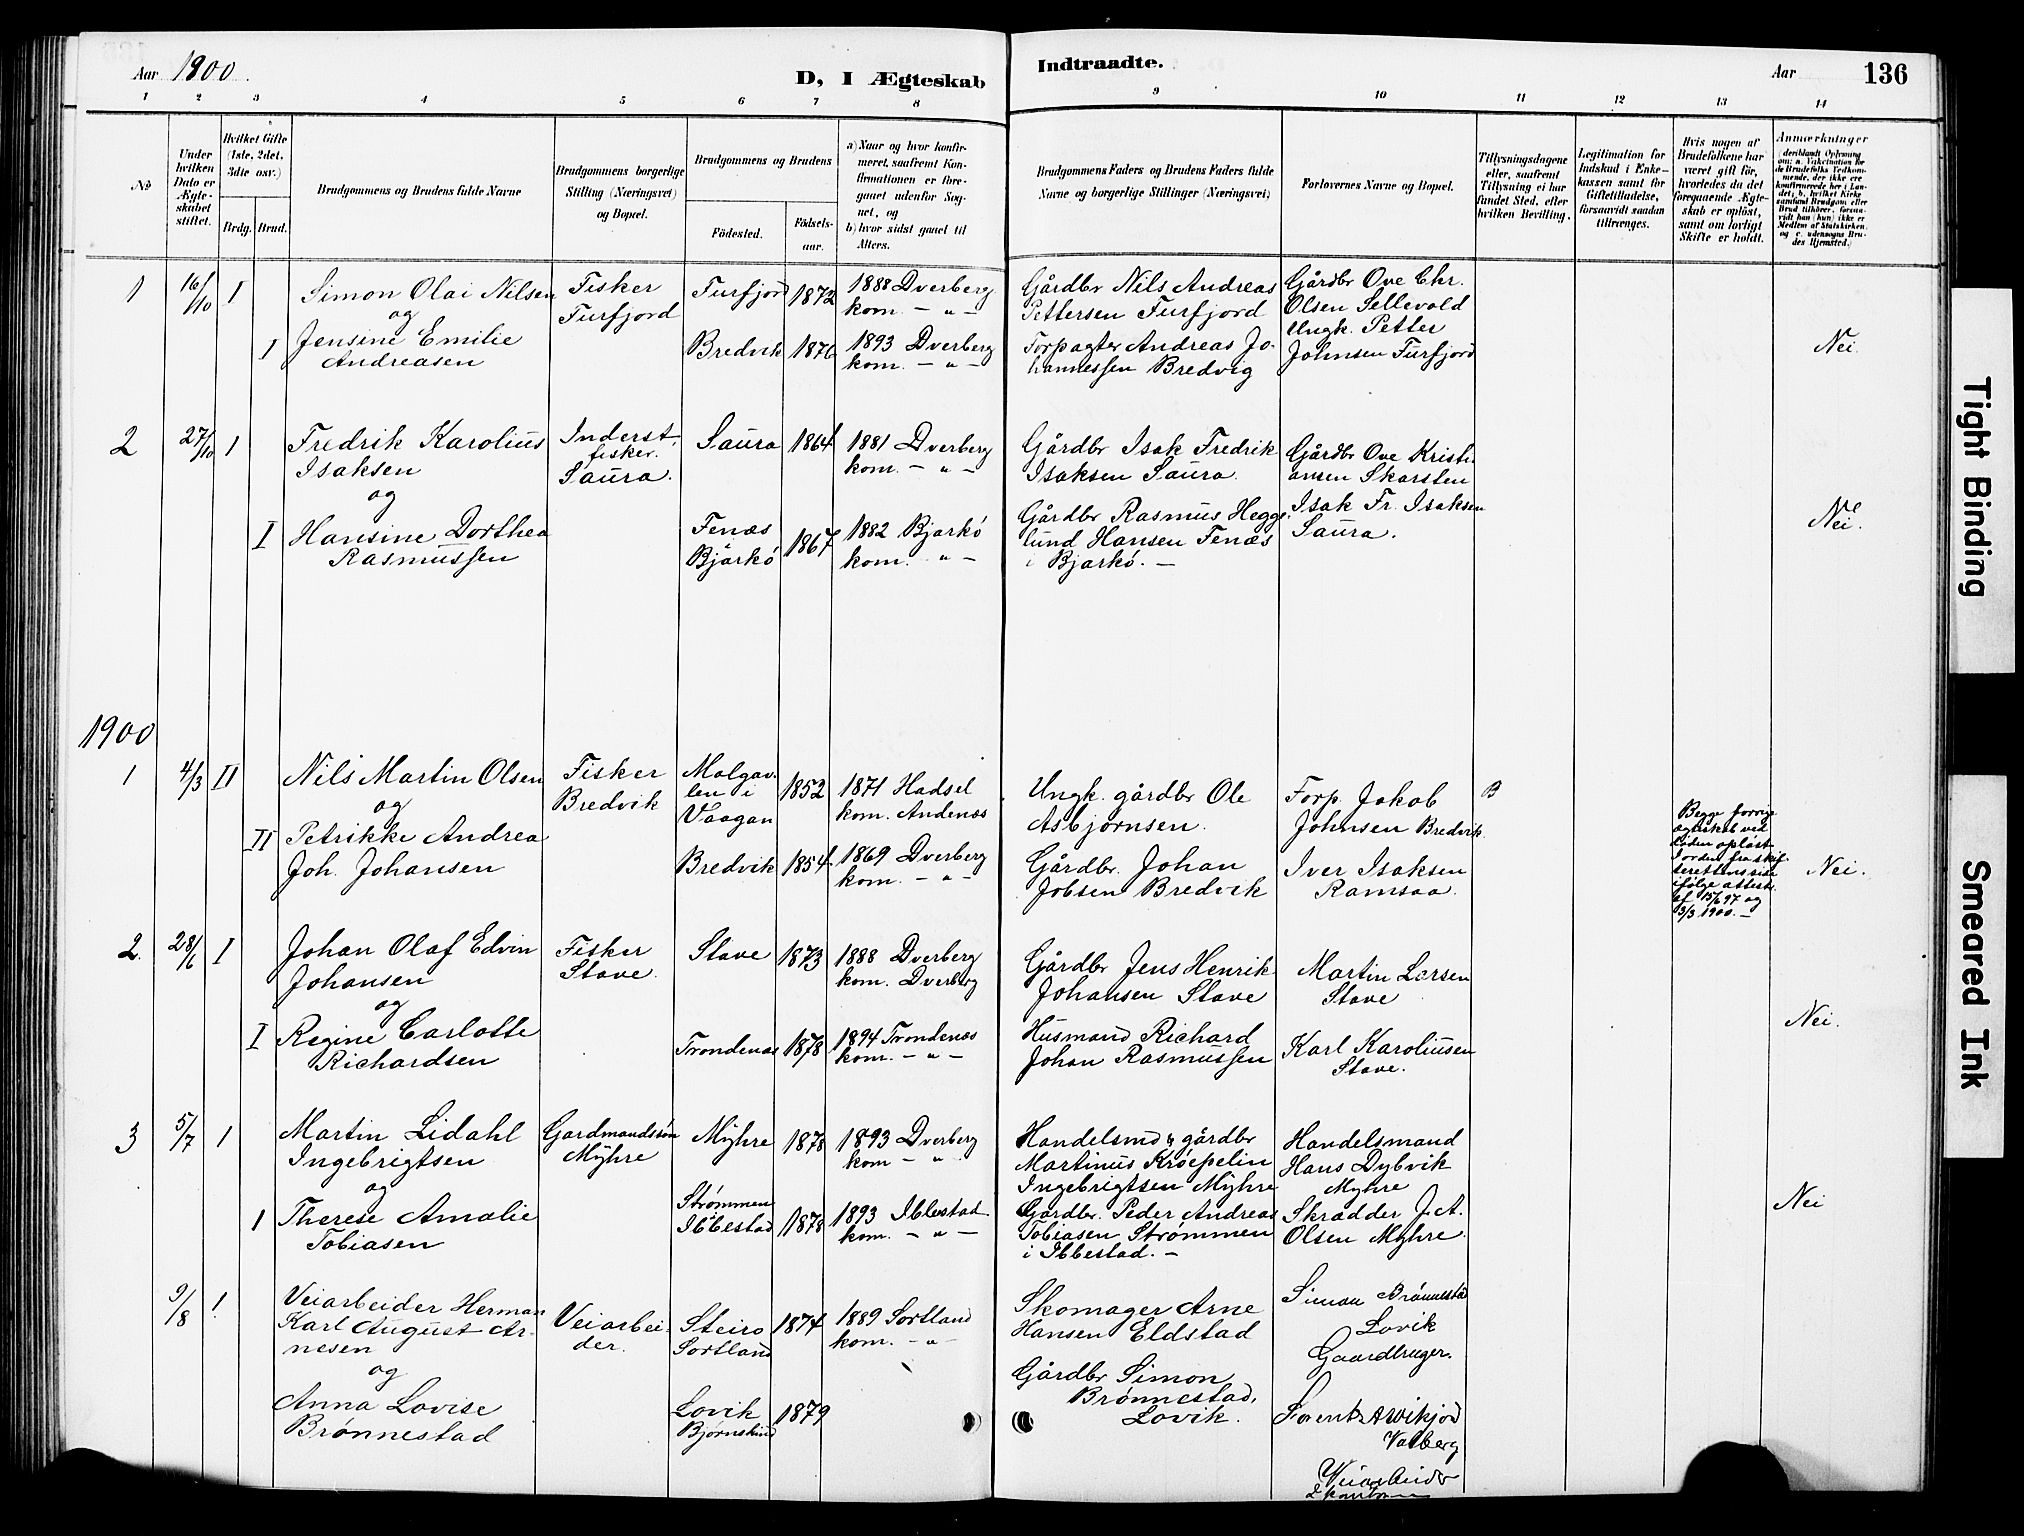 Aar 1900.
D, I Ægteskab
Indtraadte.
Aar
136
1 2 3 4 5 6 7 8 9 10 11 12 13 14
No
Under hvilken Dato er Ægteskabet stiftet.
Hvilket Gifte (1ste, 2det, 3dte osv.)
Brdg. Brud.
Brudgommens og Brudens fulde Navne
Brudgommens borgerlige Stilling (Næringsvei) og Bopæl.
Brudgommens og Brudens
Födested.
Födselsaar.
a) Naar og hvor konfirmeret, saafremt Konfirmationen er foregaaet udenfor Sognet, og
b) hvor sidst gaaet til Alters.
Brudgommens Faders og Brudens Faders fulde Navne og borgerlige Stillinger (Næringsvei)
Forlovernes Navne og Bopæl.
Tillysningsdagene eller, saafremt Tillysning ei har fundet Sted, efter hvilken Bevilling.
Legitimation for Indskud i Enkekassen samt for Giftetilladelse, forsaavidt saadan tiltrænges.
Hvis nogen af Brudefolkene har været gift för, hvorledes da det foregaaende Ægteskab er oplöst, samt om lovligt Skifte er holdt.
Anmærkninger
(deriblandt Oplysning om: a. Vakcination for de Brudefolks Vedkommende, der ikke ere konfirmerede her i Landet; b. hvilket Kirkesamfund Brudgom eller Brud tilhörer, forsaavidt han (hun) ikke er Medlem af Statskirken, og c. udensogns Brudes Hjemsted.)
1 16/10 I
Simon Olai Nilsen
og
I Jensine Emilie
Andreasen
Fisker
Furfjord
Furfjord 1872
1888 Dverberg
kom. – " –
Bredvik 1876
1893 Dverberg
kom. – " –
Gårdbr Nils Andreas
Pettersen Furfjord
Forpagter Andreas Jo-
hannessen Bredvig
Gårdbr Ove Chr.
Olsen Sellevold
Ungk. Petter
Johnsen Furfjord
Nei.
2 27/10 I
Fredrik Karolius
Isaksen
og
I Hansine Dorthea
Rasmussen
Inderst,
fisker.
Saura.
Saura 1864
1881 Dverberg
kom. – " –
Fenæs
i
Bjarkö 1867
1882 Bjarkö
kom. " –
Gårdbr Isak Fredrik
Isaksen Saura.
Gårdbr Rasmus Hegge
lund Hansen Fenæs
i Bjarkö. –
Gårdbr Ove Kristi
ansen Skarsten
Isak Fr. Isaksen
Saura.
Nei.
1900
1 4/3 II
Nils Martin Olsen
og
II Petrikke Andrea
Joh. Johansen
Fisker
Bredvik
Molgav-
len i
Vaagan 1852
1871 Hadsel
kom. Andenæs
Bredvik 1854
1869 Dverberg
kom. – " –
Ungk. gårdbr Ole
Asbjørnsen.
Gårdbr. Johan
Jobsen Bredvik
Forp. Jakob
Johnsen Bredvik.
Iver Isaksen
Ramsaa.
B
Begge forrige
ægteskab ved
döden oplöst.
I orden fra skif-
terettens side
ifølge attest
af 15/6 97 og
3/3 1900. –
Nei.
2. 28/6 I
Johan Olaf Edvin
Johansen
og
I Regine Carlotte
Richardsen
Fisker
Stave.
Stave 1873
1888 Dverberg
kom. Dverberg
Trondenæs 1878
1894 Trondenæs
kom. – " –
Gårdbr Jens Henrik
Johansen Stave
Husmand Richard
Johan Rasmussen
Martin Larsen
Stave
Karl Karoliusen
Stave.
Nei.
3 5/7 1
Martin Lidahl
Ingebrigtsen
og
1 Therese Amalie
Tobiasen
Gardmandssøn
Myhre
Myhre 1878
1893 Dverberg
kom – " –
Strømmen
Ibbestad 1878
1893 Ibbestad
kom. – " –
Handelsmd & gårdbr
Martinus Krøepelin
Ingebrigtsen Myhre
Gårdbr. Peder Andreas
Tobiasen Strømmen
i Ibbestad. –
Handelsmand
Hans Dybvik
Myhre
Skrædder J. A.
Olsen Myhre.
Nei
9/8 1
Veiarbeider Herman
Karl August Ar-
nesen
og
Anna Lovise
Brønnestad
Veiarbei-
der.
Steiro
Sortland 1874
1889 Sortland
kom. – " –
Lovik
Bjørnskind 1879
Skomager Arne
Hansen Eldstad
Gårdbr Simon
Brønnestad,
Lovik.
Simon Brønnestad
Lovik
Gaardbruger.
Valberg
Veiarbeider
Tight Binding
Smeared Ink